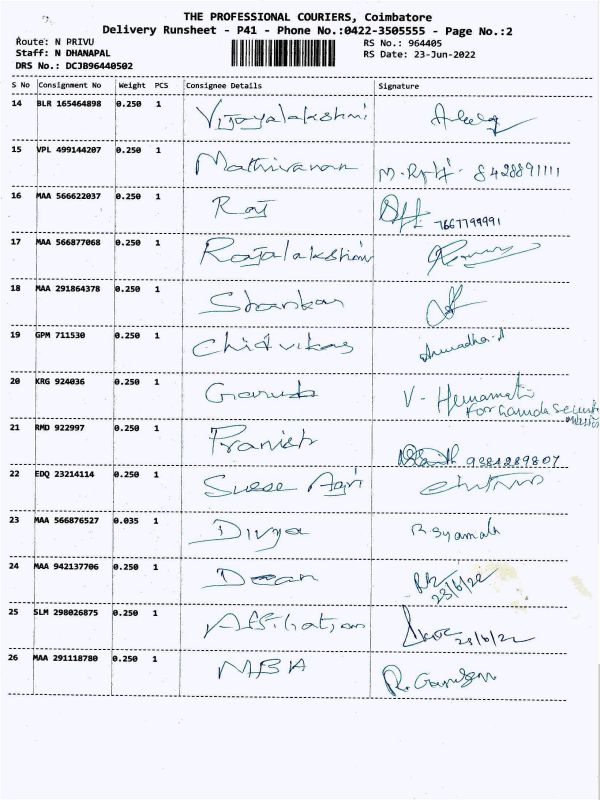 THE PROFESSIONAL COURIERS, Coimbatore
Delivery Runsheet - P41 - Phone No.:0422-3505555 - Page No.:2
Route: N PRIVU RS No.: 964405
Staff: N DHANAPAL RS Date: 23-Jun-2022
DRS No.: DCJB96440502
S No Consignment No Weight PCS Consignee Details Signature
14 BLR 165464898 0.250 1 Vijayalakshmi
15 VPL 499144207 0.250 1 Mathivanan 8428891111
16 MAA 566622037 0.250 1 Raj 7667799991
17 MAA 566877068 0.250 1 Rajalakshimi
18 MAA 291864378 0.250 1 Shankar
19 GPM 711530 0.250 1 Chidvikas Anuradha.A
20 KRG 924036 0.250 1 Garuda V- Hemamati
For Garuda
21 RMD 922997 0.250 1 Pranish 9384289807
22 EDQ 23214114 0.250 1 Suese Agri
23 MAA 566876527 0.035 1 Divya R.Syamala
24 MAA 942137706 0.250 1 Dean 23/6/22
25 SLM 298026875 0.250 1 Affiliation 23/6/22
26 MAA 291118780 0.250 1 MBA R. Ganesan